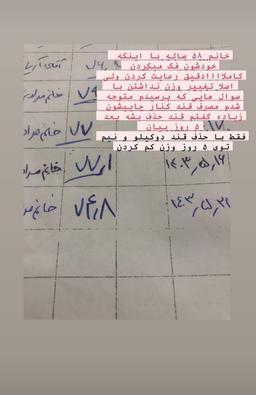 خانم ۵۸ ساله با اینکه
خودشون فک میکردن
کاملاااادقیق رعایت کردن ولی
اصلا تغییر وزن نداشتن با
سوال هایی که پرسیدم متوجه
شدم مصرف قند کنار چاییشون
زیاده گفتم قند حذف بشه بعد
۵ روز بیان
فقط با حذف قند دوکیلو و نیم
توی ۵ روز وزن کم کردن
خانم
۷۷
خانم
۷۷٫۱
۱۴۰۳٫۵٫۱۶
خانم
۷۴٫۸
۱۴۰۳٫۵٫۲۱